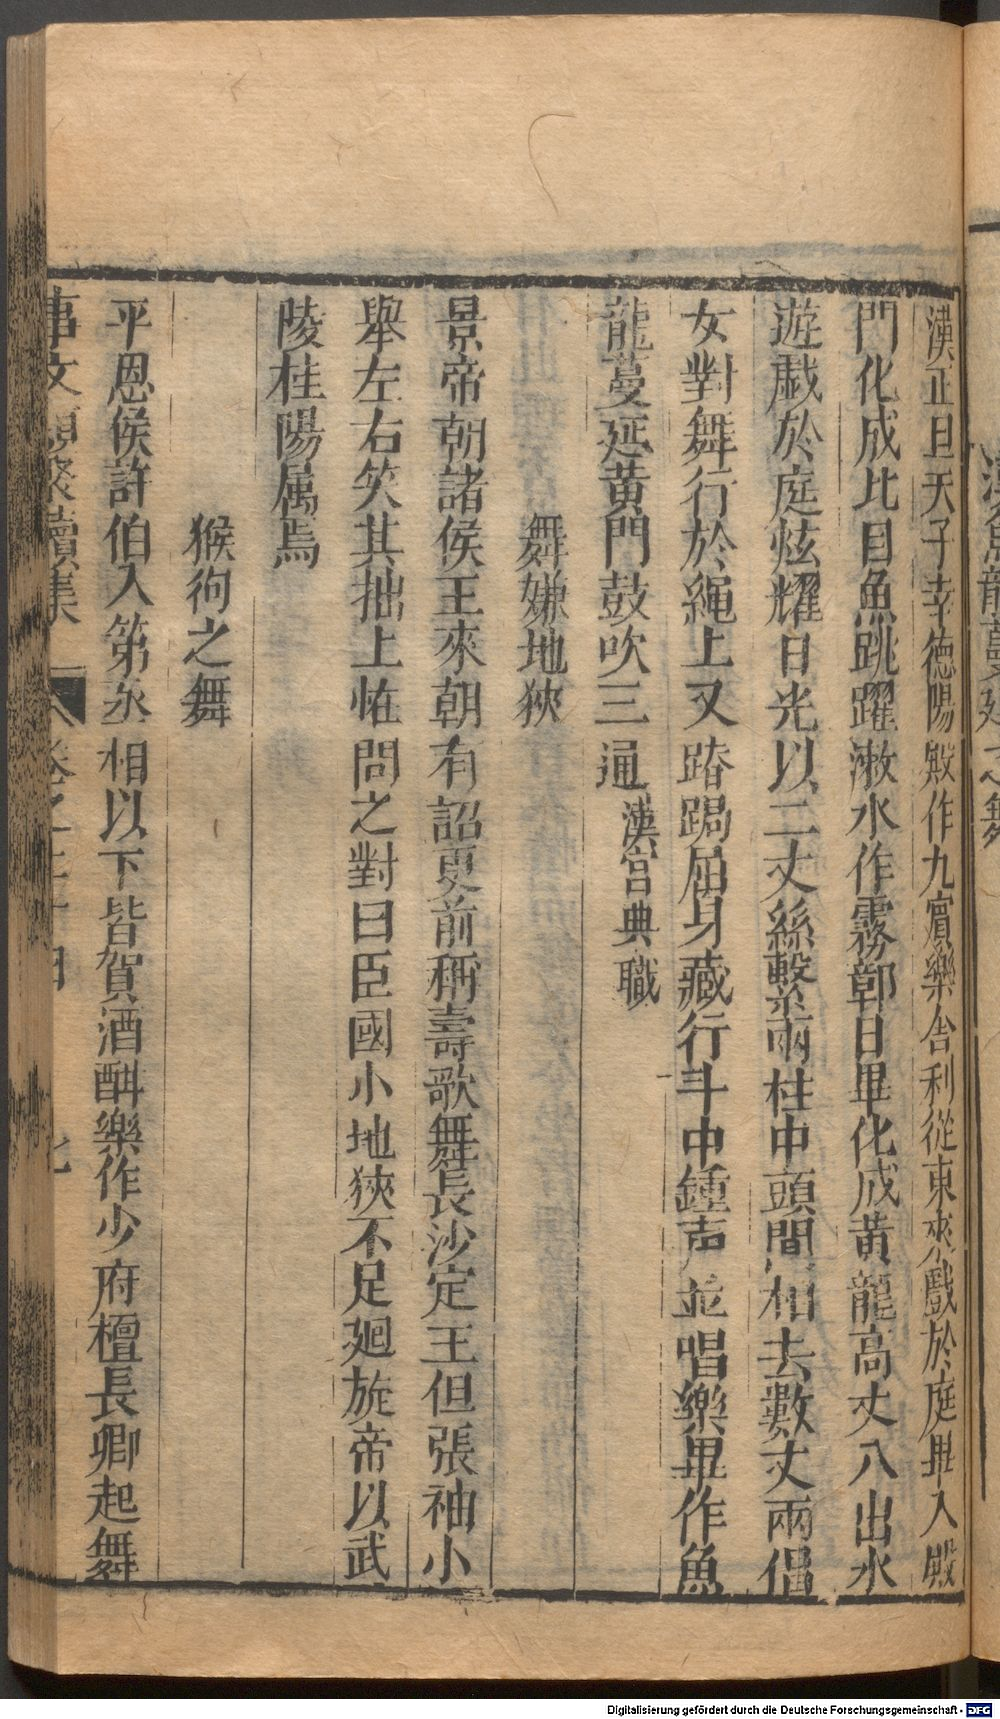 漢正旦天子幸德陽殿作九賓樂舎利從東來戲於庭畢入殿
門化成比目魚跳躍漱水作霧鄣日畢化成黄龍高丈八出水
遊戯於庭炫燿日光以二丈絲繫兩柱中頭間相去數丈兩倡
女對舞行於繩上又踏跼屈身藏行斗中鍾声並唱樂畢作魚
龍蔓延黄門鼓吹三通漢宫典職
舞嫌地狹
景帝朝諸侯王來朝有詔更前稱壽歌舞長沙定王但張袖小
舉左右笑其拙上恠問之對曰臣國小地狹不足廻旋帝以武
陵桂陽属焉
猴狗之舞
平恩侯許伯入第丞相以下皆賀酒酣樂作少府檀長卿起舞
事文類聚續集
卷之二十四
Digitalisierung gefördert durch die Deutsche Forschungsgemeinschaft - DFG